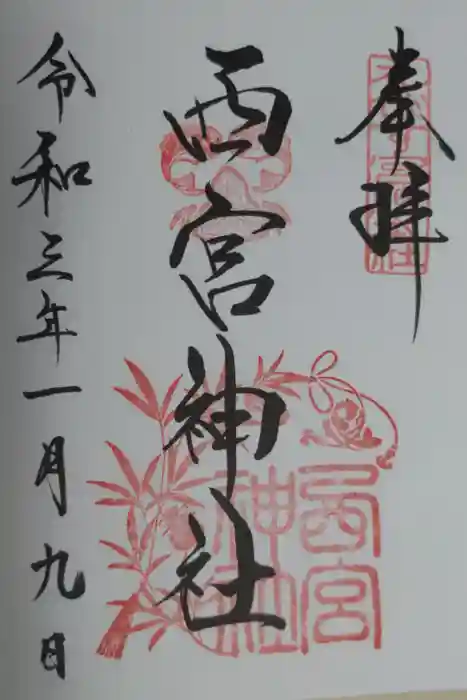 奉拝
西宮神社
令和三年一月九日
西宮
神社